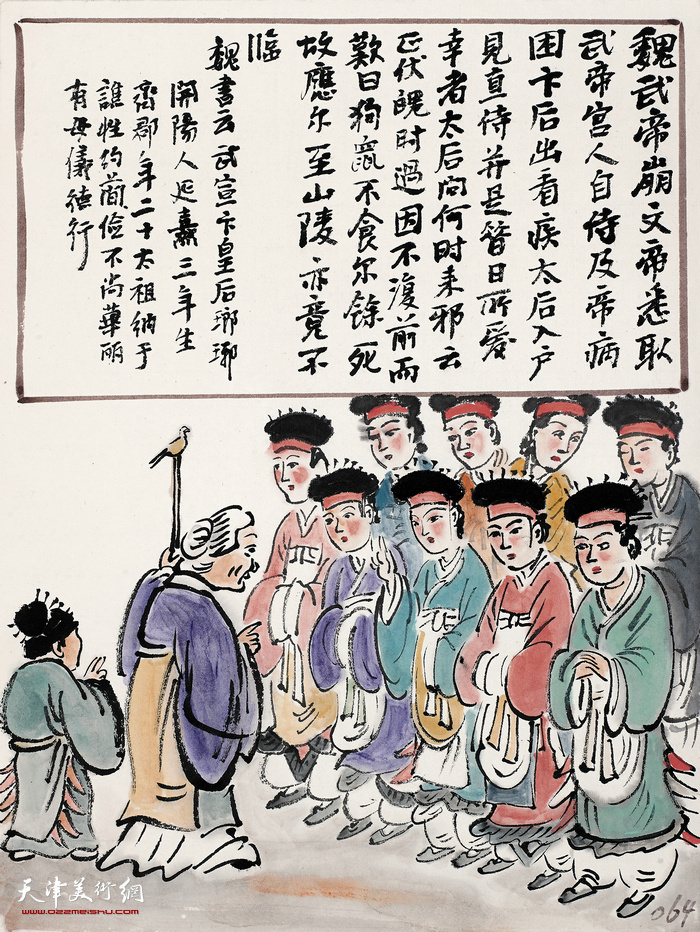 魏武帝崩文帝悉取
武帝宫人自侍及帝病
困卞后出看疾太后入户
見直侍并是昔日所爱
幸者太后问何时来邪云
正伏魄时過因不復前而
歎曰狗鼠不食尔餘死
故應尔至山陵亦竟不
臨
魏書云武宣卞皇后瑯琊
開陽人延熹三年生
齊郡年二十太祖纳于
譙性约简俭不尚華丽
有母儀德行
天津美術網
www.022meishu.com
064